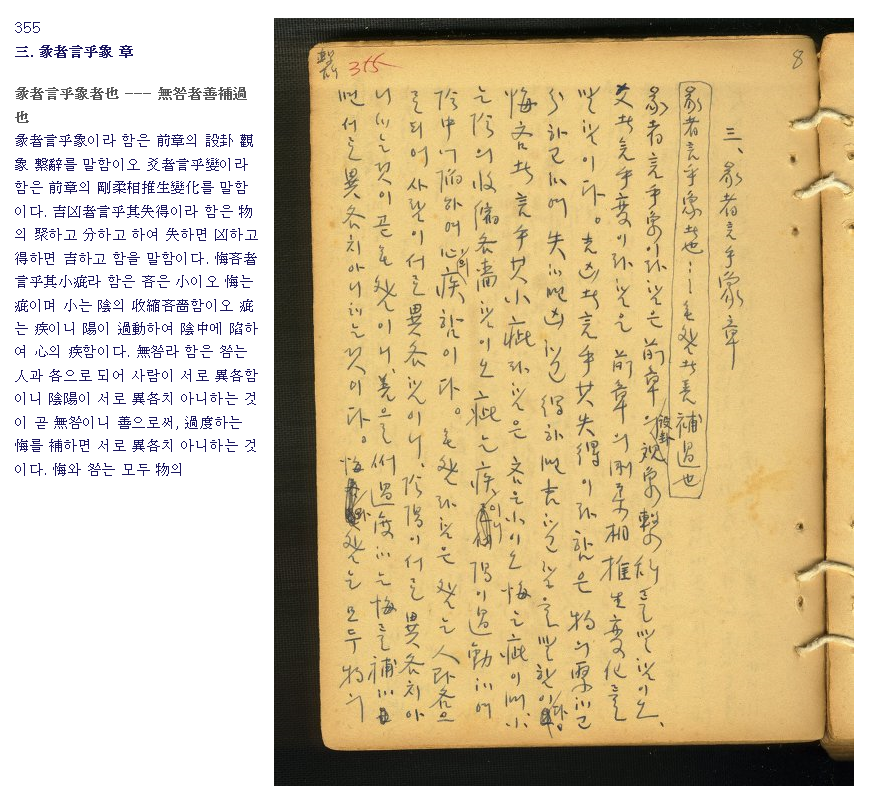 355
三. 彖者言乎象 章
彖者言乎象者也 --- 無咎者善補過
也
彖者言乎象이라 함은 前章의 設卦 觀
象 繫辭를 말함이오 爻者言乎變이라
함은 前章의 剛柔相推生變化를 말함
이다. 吉凶者言乎其失得이라 함은 物
의 聚하고 分하고 하여 失하면 凶하고
得하면 吉하고 함을 말함이다. 悔吝者
言乎其小疵라 함은 吝은 小이오 悔는
疵이며 小는 陰의 收縮吝嗇함이오 疵
는 疾이니 陽이 過動하여 陰中에 陷하
여 心의 疾함이다. 無咎라 함은 咎는
人과 各으로 되어 사람이 서로 異各함
이니 陰陽이 서로 異各치 아니하는 것
이 곧 無咎이니 善으로써, 過度하는
悔를 補하면 서로 異各치 아니하는 것
이다. 悔와 咎는 모두 物의
8
繫 355
三、彖者言乎象 章
彖者言乎象者也 --- 無咎者善補過也
彖者言乎象이라함은 前章의 設卦 觀象 繫辭를 말함이오、
爻者言乎變이라함은 前章의 剛柔相推生變化를
말함이다。吉凶者言乎其失得이라함은 物의 聚하고
分하고 하여 失하면 凶하고 得하면 吉하고 함을 말함이다。
悔吝者言乎其小疵라함은 吝은 小이오 悔는 疵이며 小
는 陰의 收縮吝嗇함이오 疵는 疾이니 陽이 過動하여
陰中에 陷하여 心의 疾함이다。無咎라함은 咎는 人과 各으
로 되어 사람이 서로 異各함이니、陰陽이 서로 異各치아
니하는것이 곧 無咎이니、善으로써 過度하는 悔를 補하
면 서로 異各치아니하는것이다。悔와 咎는 모두 物의